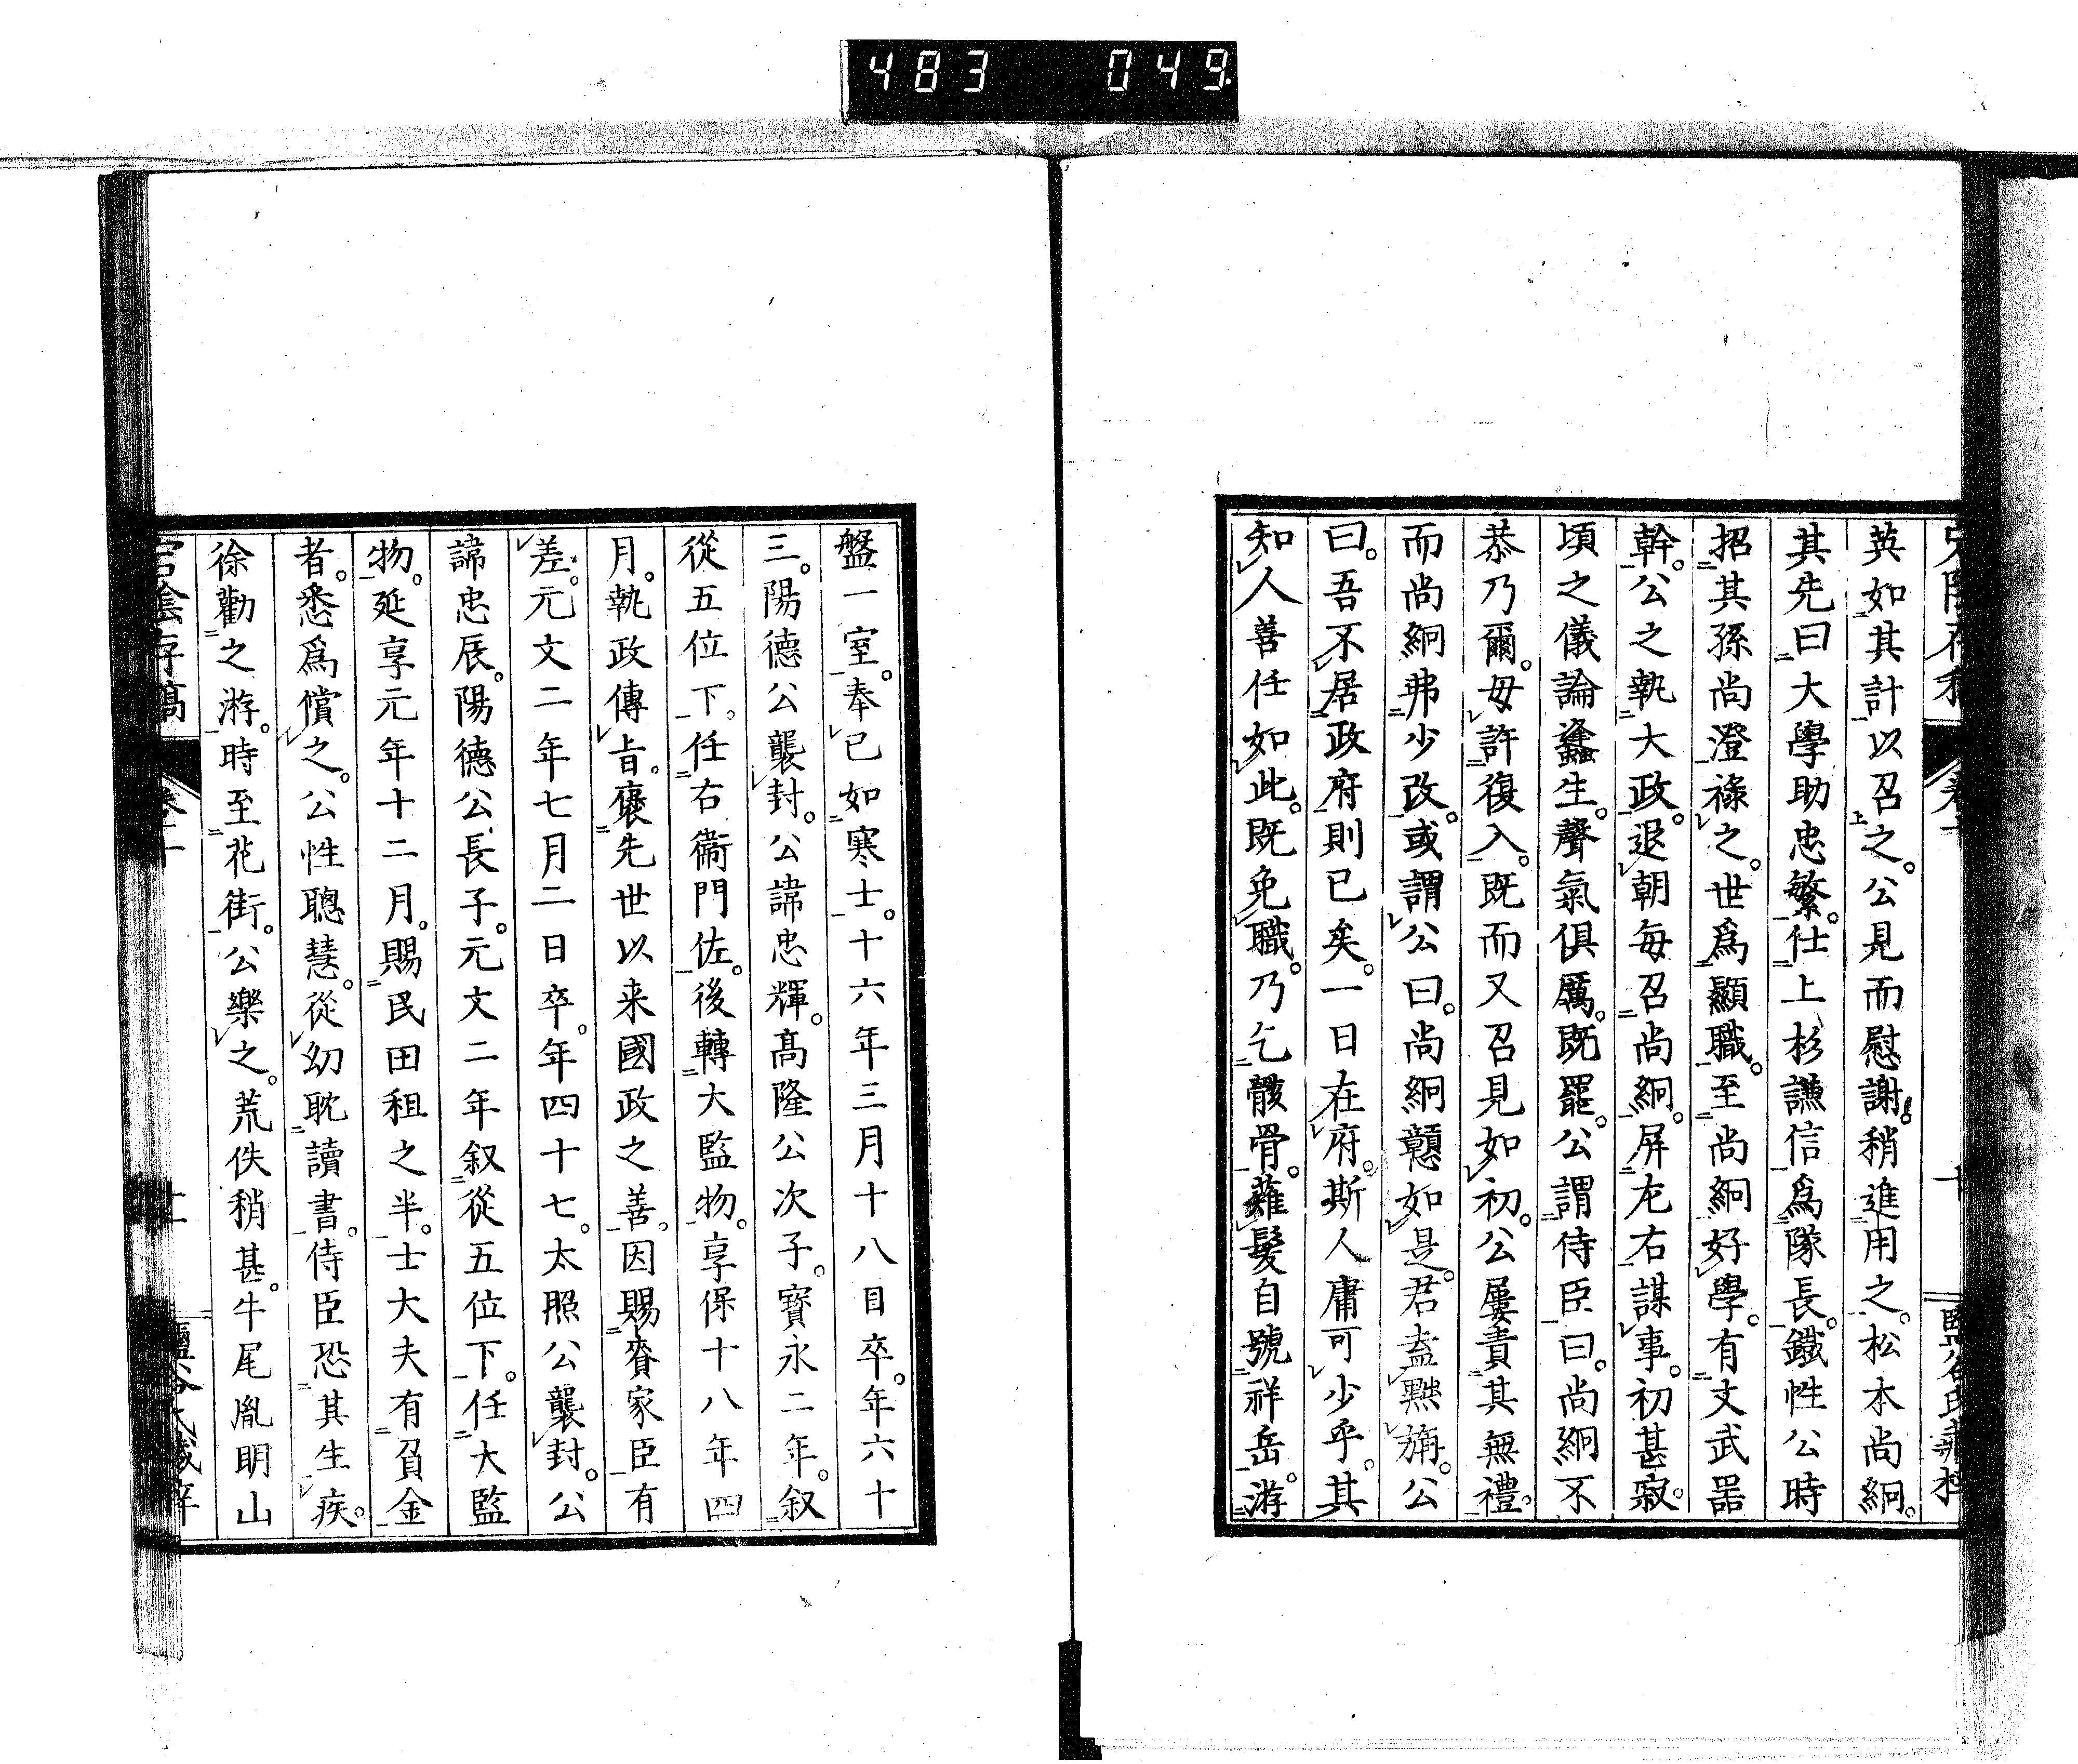 483 049
英如其計以召之。公見而慰謝。稍進用之。松本尚絅。
其先曰大學助忠繁。仕上杉謙信爲隊長。鐵性公時
招其孫尚澄祿之。世爲顯職。至尚絅好學。有文武器
幹。公之執大政。退朝每召尚絅。屏左右謀事。初甚寂。
頃之儀論蠭生。聲氣俱厲。既罷。公謂侍臣曰。尚絅不
恭乃爾。毋許復入。既而又召見如初。公屢責其無禮。
而尚絅弗少改。或謂公曰。尚絅戇如是。君盍黜旃。公
曰。吾不居政府則已矣。一日在府。斯人庸可少乎。其
知人善任如此。既免職。乃乞骸骨。薙髮自號祥岳。游
盤一室。奉已如寒士。十六年三月十八目卒。年六十
三。陽德公襲封。公諱忠輝。髙隆公次子。寶永二年。叙
從五位下。任右衞門佐。後轉大監物。享保十八年四
月。執政傳旨。褒先世以来國政之善。因賜賚家臣有
差。元文二年七月二日卒。年四十七。太照公襲封。公
諱忠辰。陽德公長子。元文二年叙從五位下。任大監
物。延享元年十二月。賜民田租之半。士大夫有負金
者。悉爲償之。公性聰慧。從幼耽讀書。侍臣恐其生疾。
徐勸之游。時至花街。公樂之。荒佚稍甚。牛尾胤明山